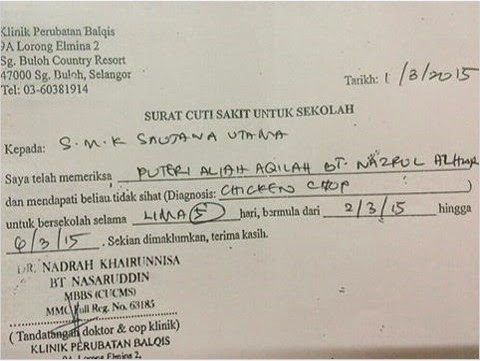 Klinik Perubatan Balqis
9A Lorong Elmina 2
Sg. Buloh Country Resort
47000 Sg. Buloh, Selangor
Tel: 03-60381914
Tarikh: 1/3/2015
SURAT CUTI SAKIT UNTUK SEKOLAH
Kepada: S.M.K SAUJANA UTAMA
Saya telah memeriksa PUTERI ALIAH AQILAH BT. NAZRUL
dan mendapati beliau tidak sihat (Diagnosis: CHICKEN CHOP)
untuk bersekolah selama LIMA 5 hari, bermula dari 2/3/15 hingga
6/3/15. Sekian dimaklumkan, terima kasih.
DR. NADRAH KHAIRUNNISA
BT NASARUDDIN
MBBS (CUCMS)
MMC Full Reg. No. 63185
(Tandatangan doktor & cop klinik)
KLINIK PERUBATAN BALQIS
9A Lorong Elmina 2,